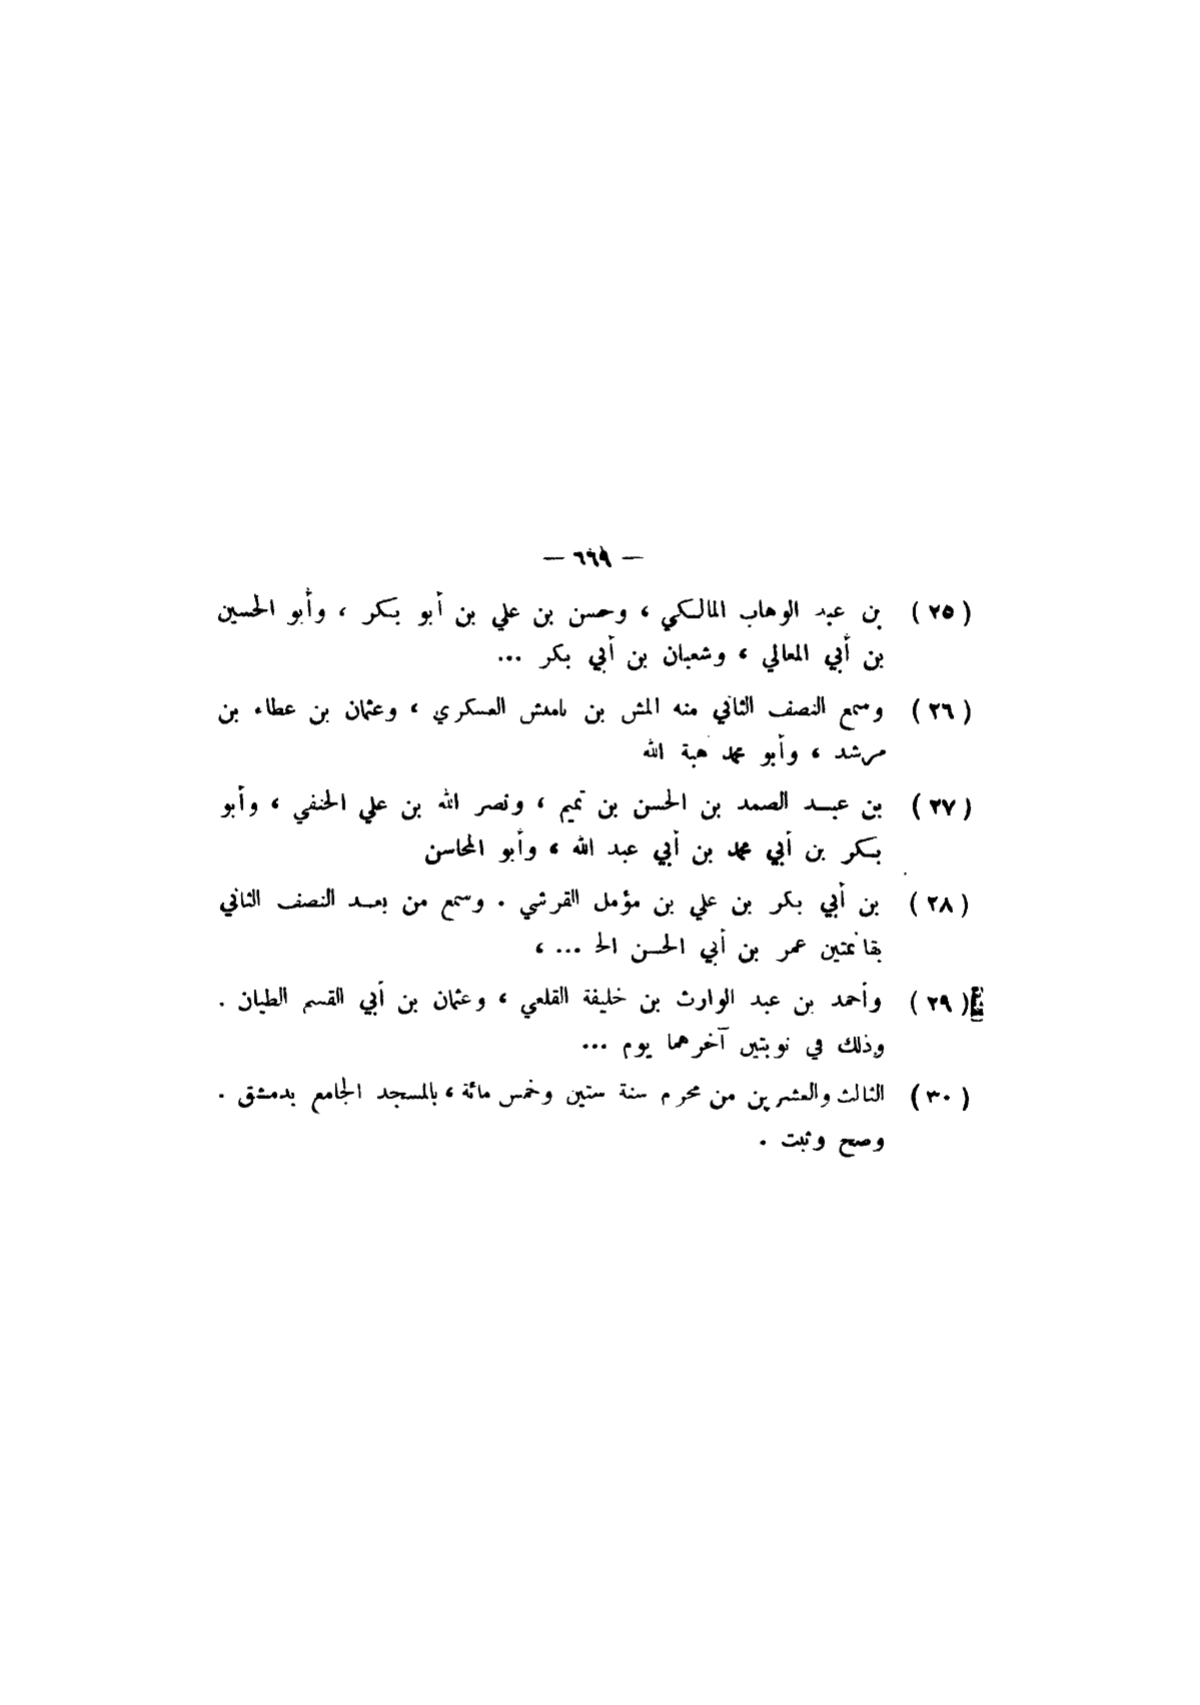 — ٦٦٩ —
( ٢٥ ) بن عبد الوهاب المالكي ، وحسن بن علي بن أبو بكر ، وأبو الحسين
بن أبي المعالي ، وشعبان بن أبي بكر ...
( ٢٦ ) وسمع النصف الثاني منه المش بن نامش العسكري ، وعثمان بن عطاء بن
مرشد ، وأبو محمد هبة الله
( ٢٧ ) بن عبد الصمد بن الحسن بن تميم ، ونصر الله بن علي الحنفي ، وأبو
بكر بن أبي محمد بن أبي عبد الله ، وأبو المحاسن
( ٢٨ ) بن أبي بكر بن علي بن مؤمل القرشي . وسمع من بعد النصف الثاني
بقائمتين عمر بن أبي الحسن الح ... ،
( ٢٩ ) وأحمد بن عبد الوارث بن خليفة القلعي ، وعثمان بن أبي القسم الطيان .
وذلك في نوبتين آخرهما يوم ...
( ٣٠ ) الثالث والعشرين من محرم سنة ستين وخمس مائة ، بالمسجد الجامع بدمشق .
وصح وثبت .